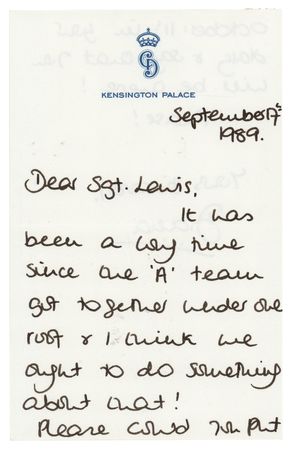 KENSINGTON PALACE
September 17th
1989.
Dear Sgt. Lewis,
It has
been a long time
since the 'A' team
got together under one
roof & I think we
ought to do something
about that!
Please could you put